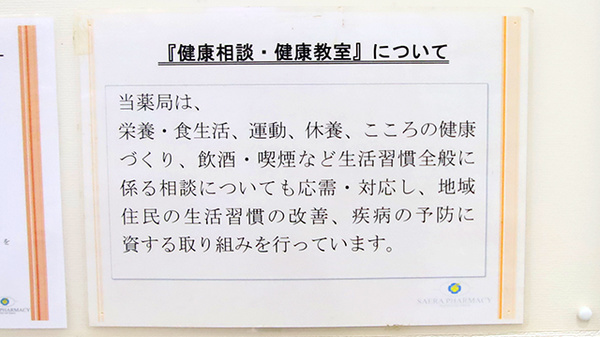 『健康相談・健康教室』について
当薬局は、
栄養・食生活、運動、休養、こころの健康
づくり、飲酒・喫煙など生活習慣全般に
係る相談についても応需・対応し、地域
住民の生活習慣の改善、疾病の予防に
資する取り組みを行っています。
SAERA PHARMACY
を
PHARMACY